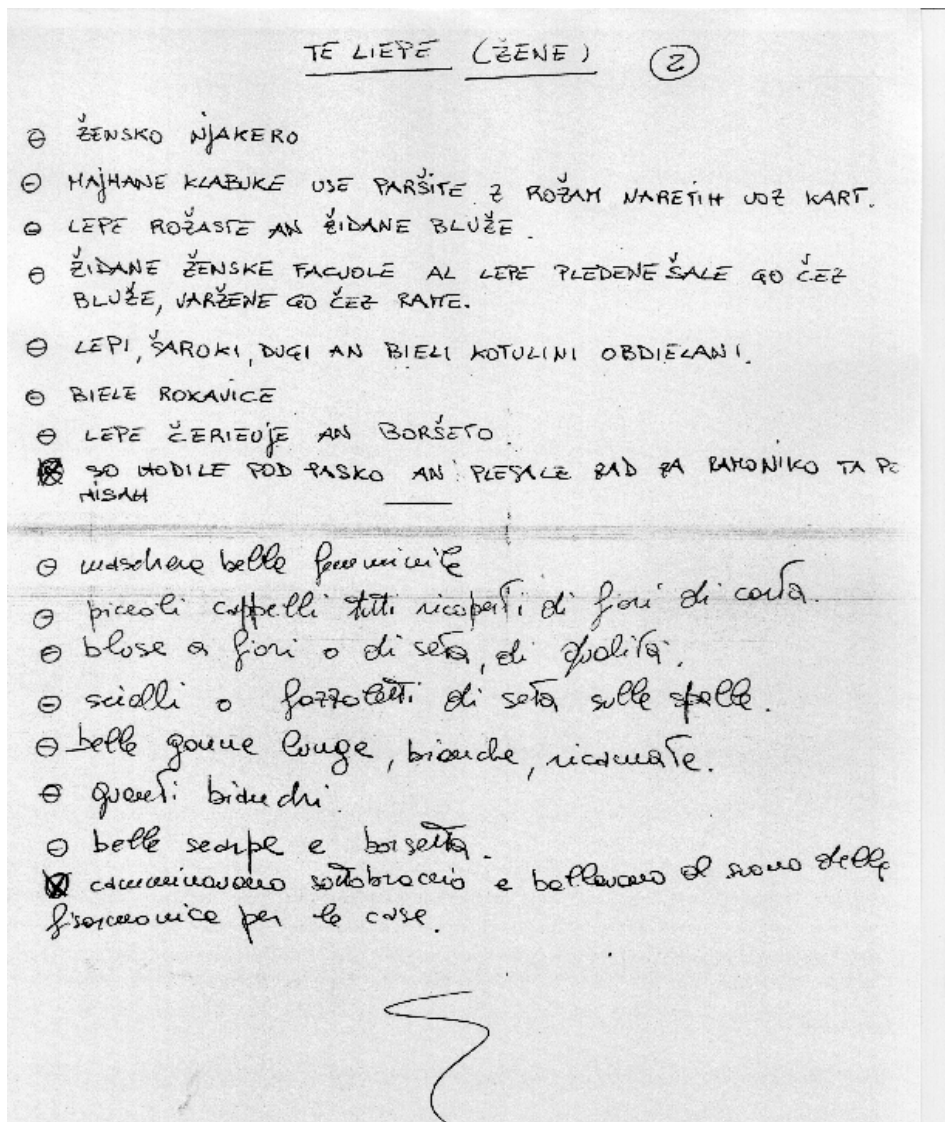 TE LIEPE (ŽENE) 2
⊖ ŽENSKO NJAKERO
⊖ MAJHANE KLABUKE USE PARŠITE Z ROŽAM NARETIH UOZ KART.
⊖ LEPE ROŽASTE AN ŽIDANE BLUŽE.
⊖ ŽIDANE ŽENSKE FACUOLE AL LEPE PLEDENE ŠALE GO ČEZ
BLUŽE, VARŽENE GO ČEZ RAME.
⊖ LEPI, ŠAROKI, DUGI AN BIELI KOTULINI OBDIELANI.
⊖ BIELE ROKAVICE
⊖ LEPE ČERIEUJE AN BORŠETO.
SO HODILE POD PASKO AN PLESALE ZAD ZA RAMONIKO TA PO
HIŠAH
⊖ maschera belle femminile
⊖ piccoli cappelli tutti ricoperti di fiori di carta.
⊖ bluse a fiori o di seta, di qualità.
⊖ scialli o fazzoletti di seta sulle spalle.
⊖ belle gonne lunge, bianche, ricamate.
⊖ guanti bianchi
⊖ belle scarpe e borsetta.
camminavano sottobraccio e ballavano al suono della
fisarmonica per le case.